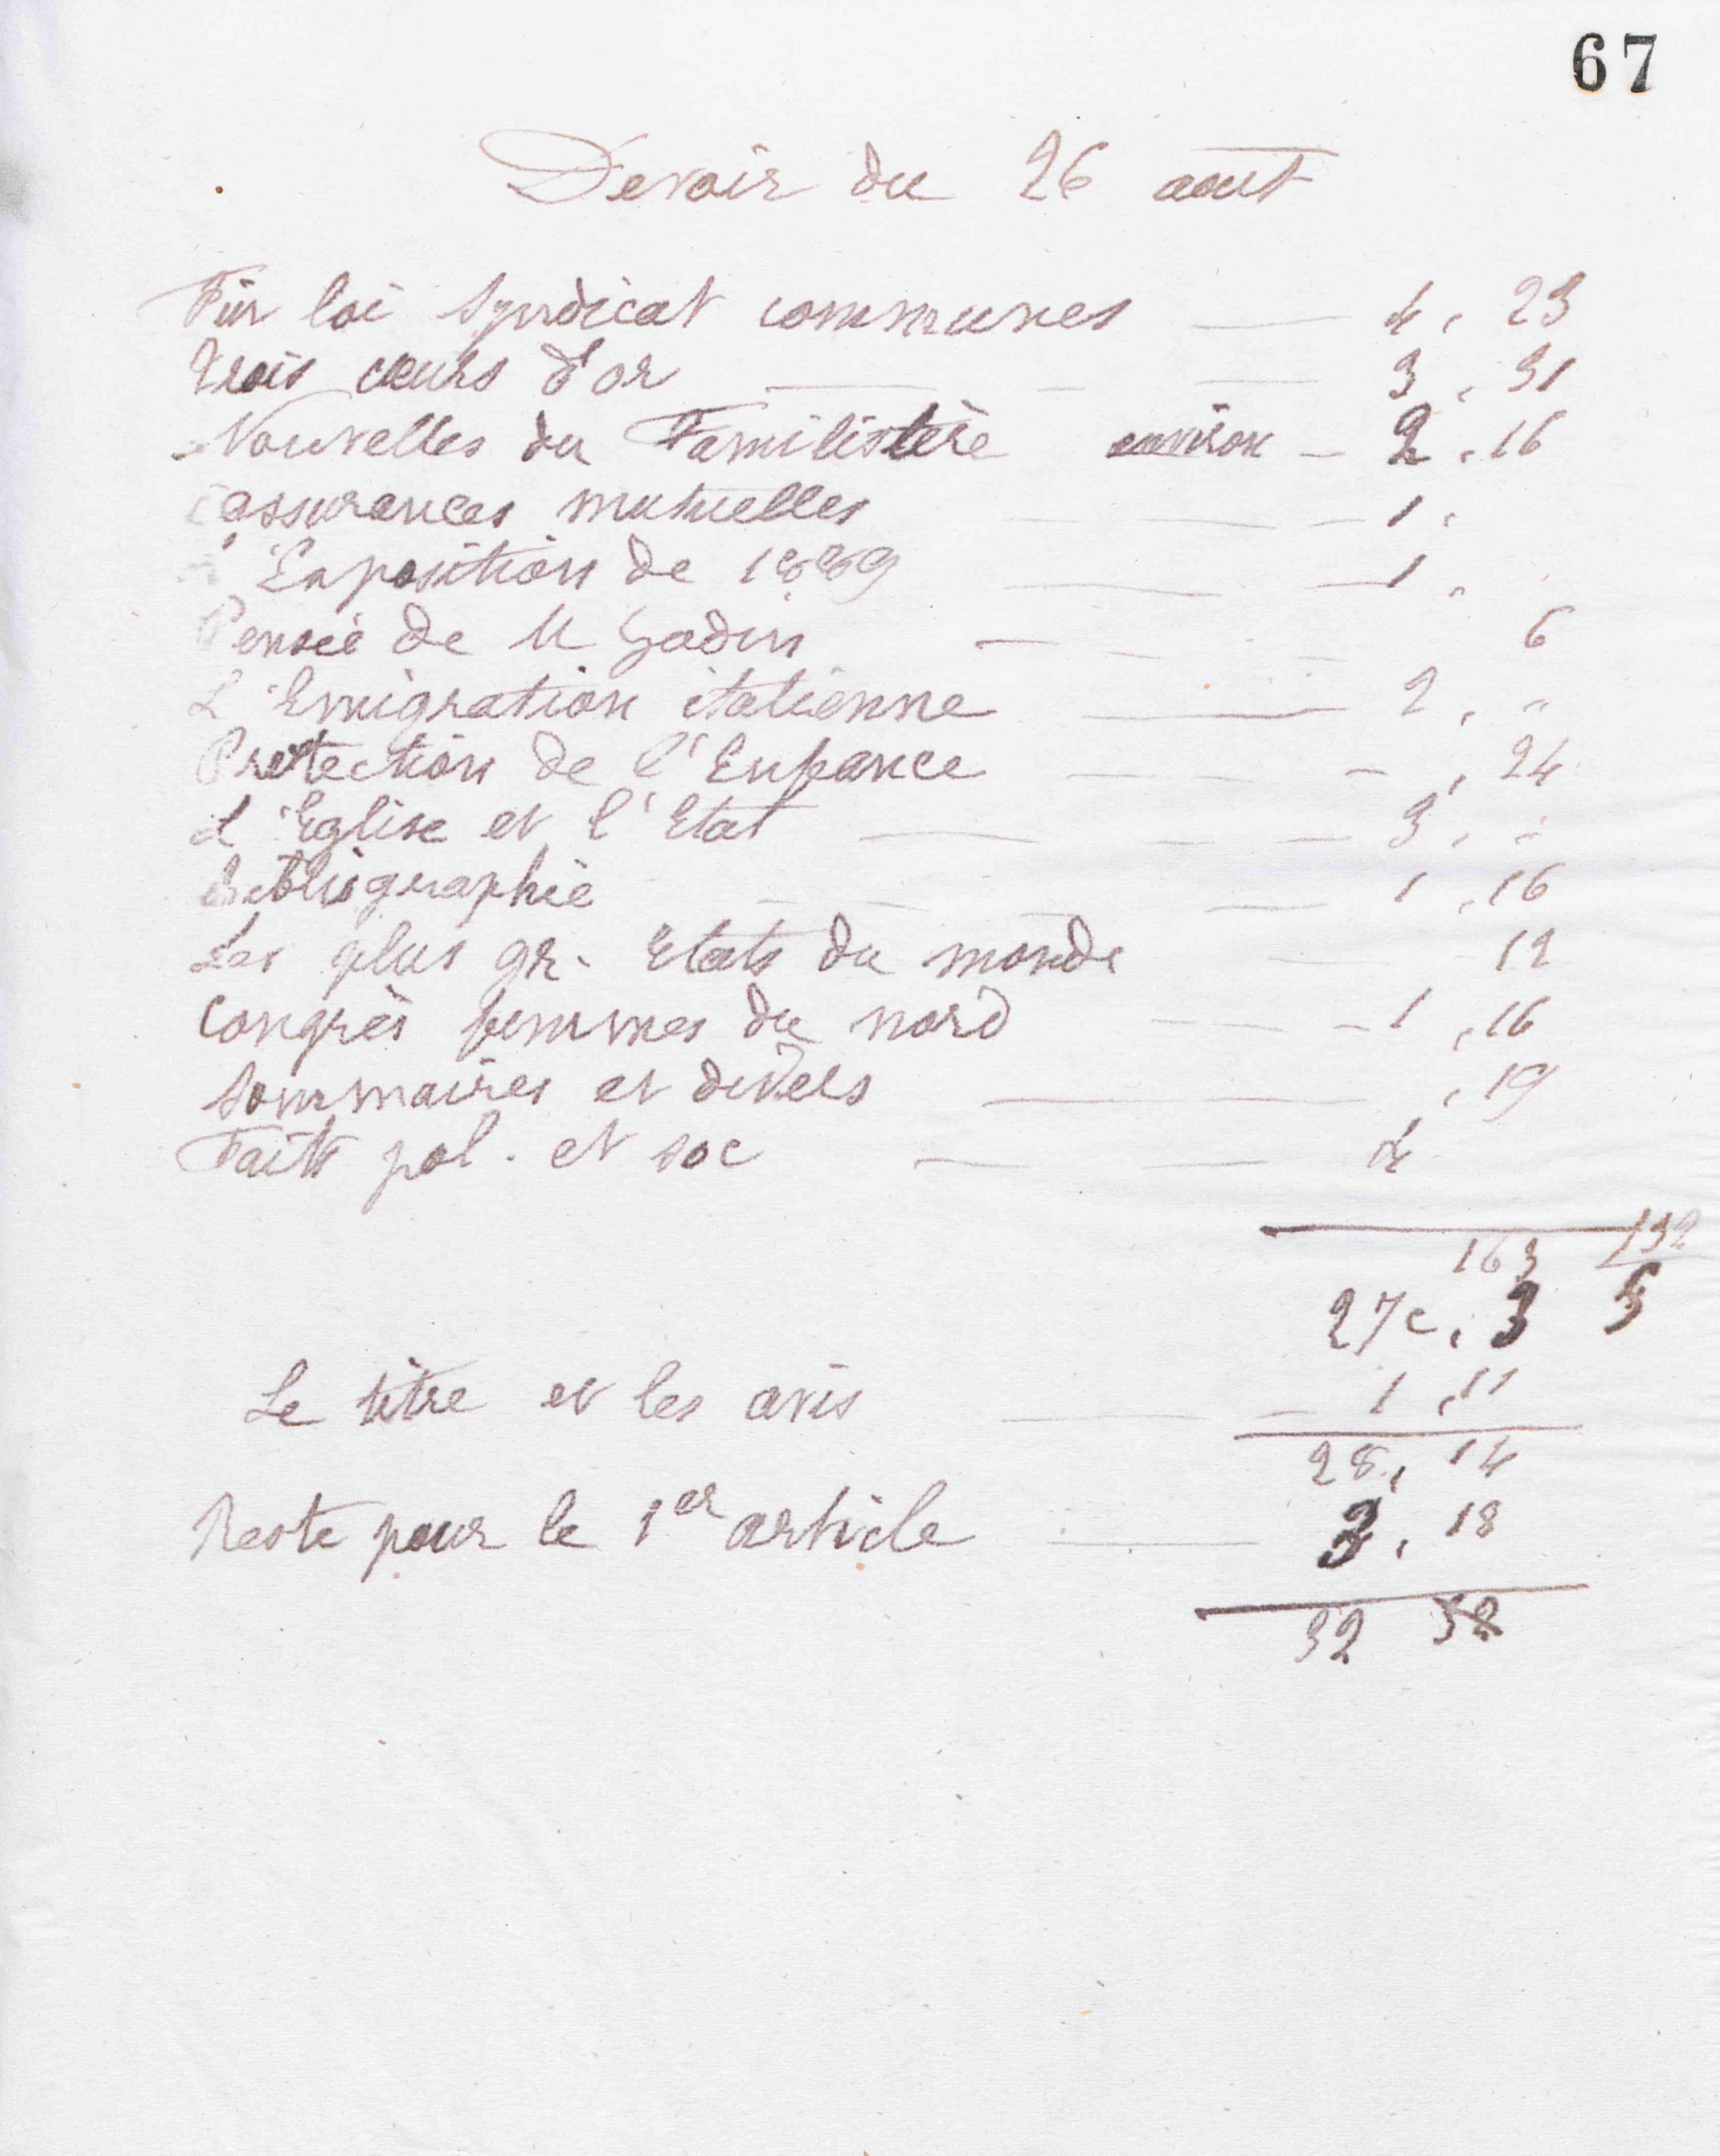 67
Devoir du 26 aout
Fin loi syndicat communes 4, 23
Trois cœurs d'or 3, 31
Nouvelles du Familistère environ 2, 16
assurances mutuelles 1,
Exposition de 1889 1,
Pensée de M Godin 6
L'Emigration italienne 2, "
Protection de l'Enfance , 24
L'Eglise et l'Etat 3, "
Bibliographie 1, 16
Les plus gr. Etats du monde 12
Congrès femmes du nord 1, 16
Sommaires et divers , 19
Faits pol. et soc 4
163 132
27c, 3 5
Le titre et les avis 1, 11
28, 14
Reste pour le 1er article 3, 18
32 32